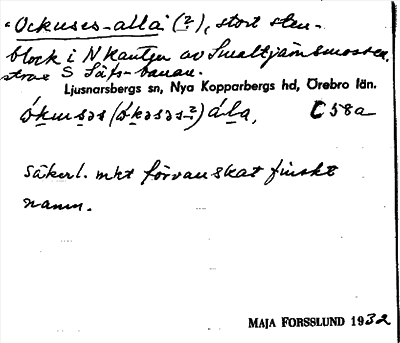 "Ockuses-alla" (?), stort sten-
block i N kanten av Smaltjärnsmossen,
strax S Säfs-banan.
Ljusnarsbergs sn, Nya Kopparbergs hd, Örebro län.
ókusəs (ókəsəs-?) ála, C58a
Säkerl. mkt förvanskat finskt
namn.
MAJA FORSSLUND 1932